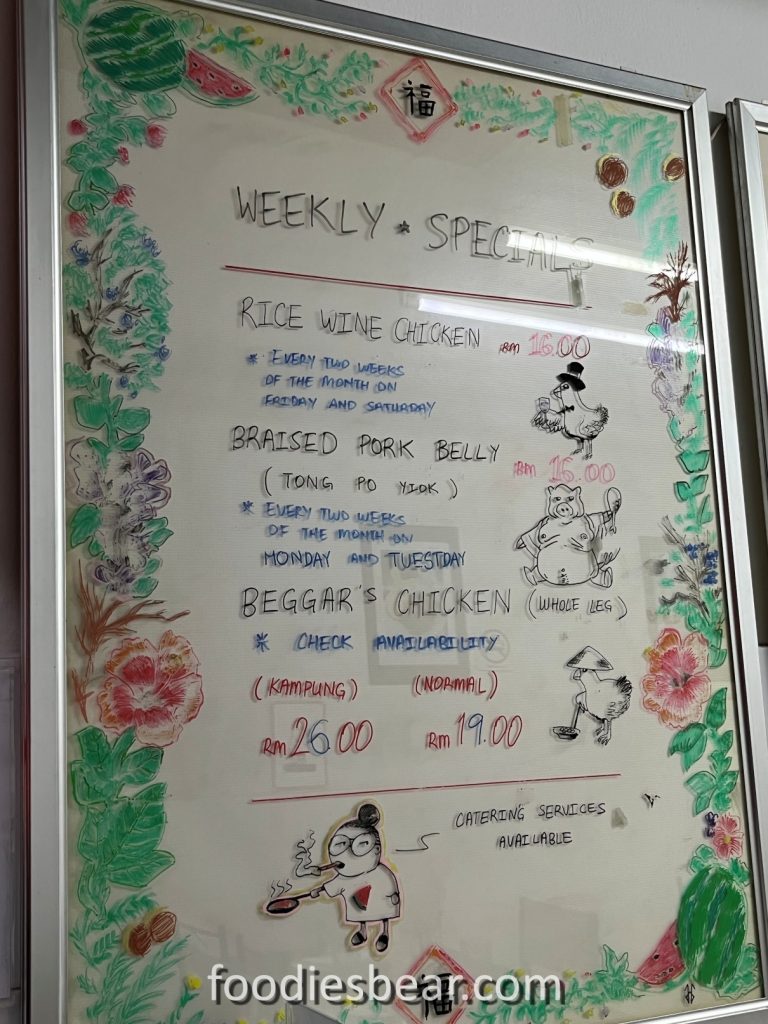 福
WEEKLY * SPECIALS
RICE WINE CHICKEN RM 16.00
* EVERY TWO WEEKS
OF THE MONTH ON
FRIDAY AND SATURDAY
BRAISED PORK BELLY
RM 16.00
(TONG PO YIOK)
* EVERY TWO WEEKS
OF THE MONTH ON
MONDAY AND TUESTDAY
BEGGAR'S CHICKEN (WHOLE LEG)
* CHECK AVAILABILITY
(KAMPUNG) (NORMAL)
RM 26.00 RM 19.00
CATERING SERVICES
AVAILABLE
foodiesbear.com
福